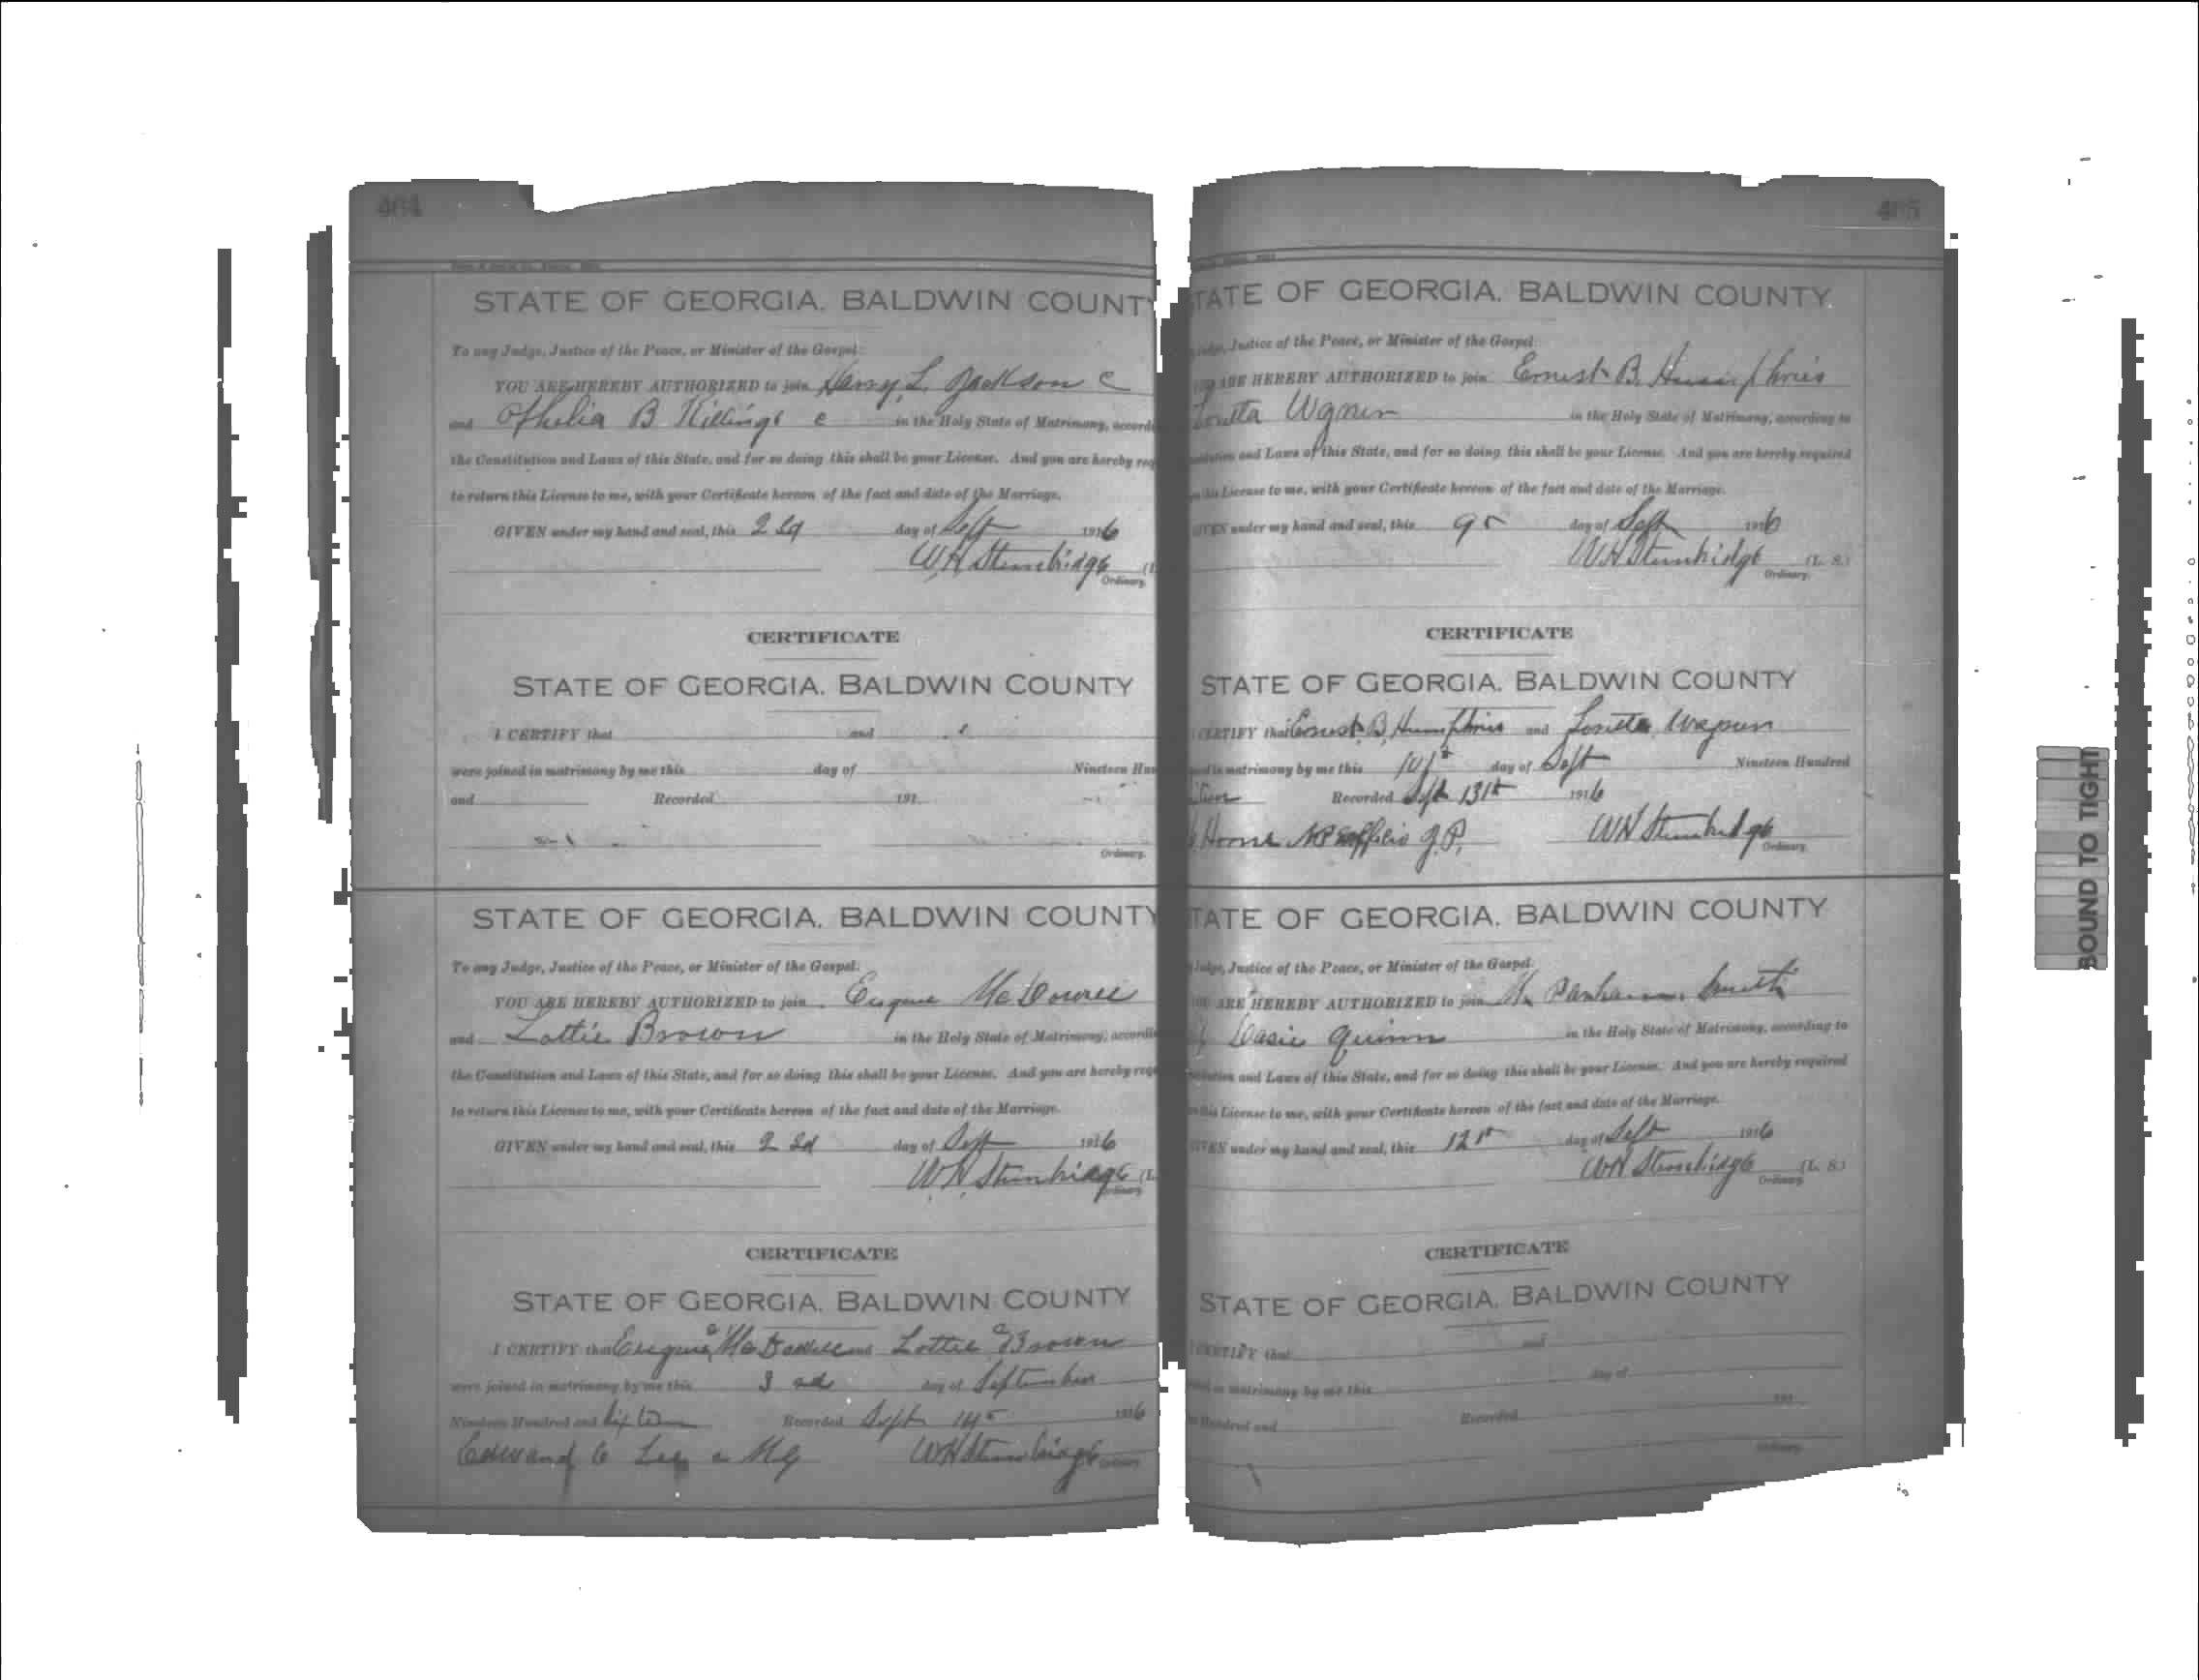 464
STATE OF GEORGIA. BALDWIN COUNT
To any Judge, Justice of the Peace, or Minister of the Gospel:
YOU ARE HEREBY AUTHORIZED to join L. Jackson C
and Ophelia B Killings c in the Holy State of Matrimony, accord
the Constitution and Laws of this State, and for so doing this shall be your License. And you are hereby req
to return this License to me, with your Certificate hereon of the fact and date of the Marriage.
GIVEN under my hand and seal, this 2 day of Sept 1916
W.H. Stembridge (L
Ordinary.
CERTIFICATE
STATE OF GEORGIA. BALDWIN COUNTY
I CERTIFY that and
were joined in matrimony by me this day of Nineteen Hun
and Recorded 191
Ordinary.
STATE OF GEORGIA. BALDWIN COUNTY
To any Judge, Justice of the Peace, or Minister of the Gospel:
YOU ARE HEREBY AUTHORIZED to join
and Lottie Brown in the Holy State of Matrimony, accordi
the Constitution and Laws of this State, and for so doing this shall be your License. And you are hereby requ
to return this License to me, with your Certificate hereon of the fact and date of the Marriage.
GIVEN under my hand and seal, this 2 day of Sept 1916
W.H. Stembridge (L.
Ordinary
CERTIFICATE
STATE OF GEORGIA. BALDWIN COUNTY
I CERTIFY that and Lottie Brown
were joined in matrimony by me this 3 day of September
Nineteen Hundred and Recorded Sept 14 1916
Edward C MG WH Stembridge
Ordinary
405
TATE OF GEORGIA. BALDWIN COUNTY.
Judge, Justice of the Peace, or Minister of the Gospel:
ARE HEREBY AUTHORIZED to join Ernest B. Humphries
in the Holy State of Matrimony, according to
and Laws of this State, and for so doing this shall be your License. And you are hereby required
License to me, with your Certificate hereon of the fact and date of the Marriage.
GIVEN under my hand and seal, this 9 day of Sept 1916
WH Stembridge (L. S.)
Ordinary.
CERTIFICATE
STATE OF GEORGIA. BALDWIN COUNTY
CERTIFY that Ernest B. Humphries and
in matrimony by me this day of Sept Nineteen Hundred
Recorded Sept 13th 1916
Horne NP J.P. WH Stembridge
Ordinary
TATE OF GEORGIA. BALDWIN COUNTY
Judge, Justice of the Peace, or Minister of the Gospel:
ARE HEREBY AUTHORIZED to join Smith
Quinn in the Holy State of Matrimony, according to
and Laws of this State, and for so doing this shall be your License. And you are hereby required
this License to me, with your Certificate hereon of the fact and date of the Marriage.
GIVEN under my hand and seal, this 12 day of Sept 1916
WH Stembridge (L. S.)
Ordinary
CERTIFICATE
STATE OF GEORGIA. BALDWIN COUNTY
CERTIFY that and
in matrimony by me this day of
Hundred and Recorded 191
Ordinary
BOUND TO TIGHT